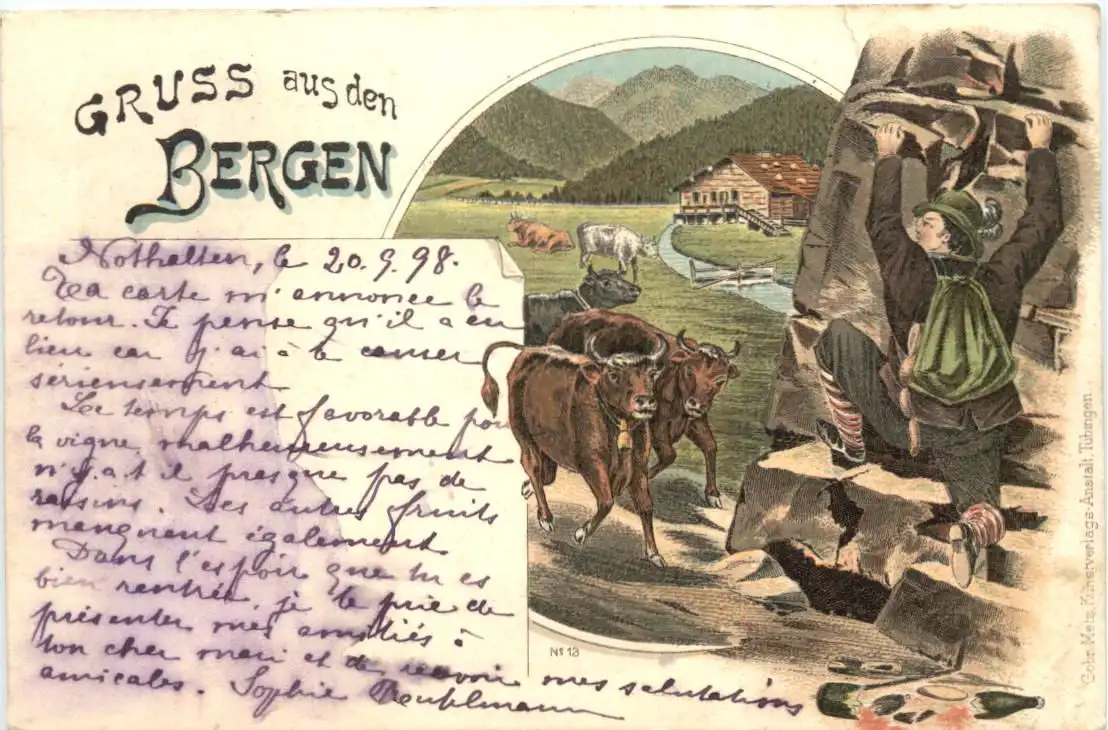 GRUSS aus den
BERGEN
Nothalten, le 20.9.98.
Ta carte m'annonce le
retour. Je pense qu'il a eu
lieu car j'ai à te causer
sérieusement
Le temps est favorable pour
la vigne malheureusement
n'y a t il presque pas de
raisins. Les autres fruits
manquent également
Dans l'espoir que tu es
bien rentrée, je te prie de
présenter mes amitiés à
ton cher mari et de recevoir mes salutations
amicales. Sophie
No 13
Gebr. Metz, Künstverlags-Anstalt, Tübingen.